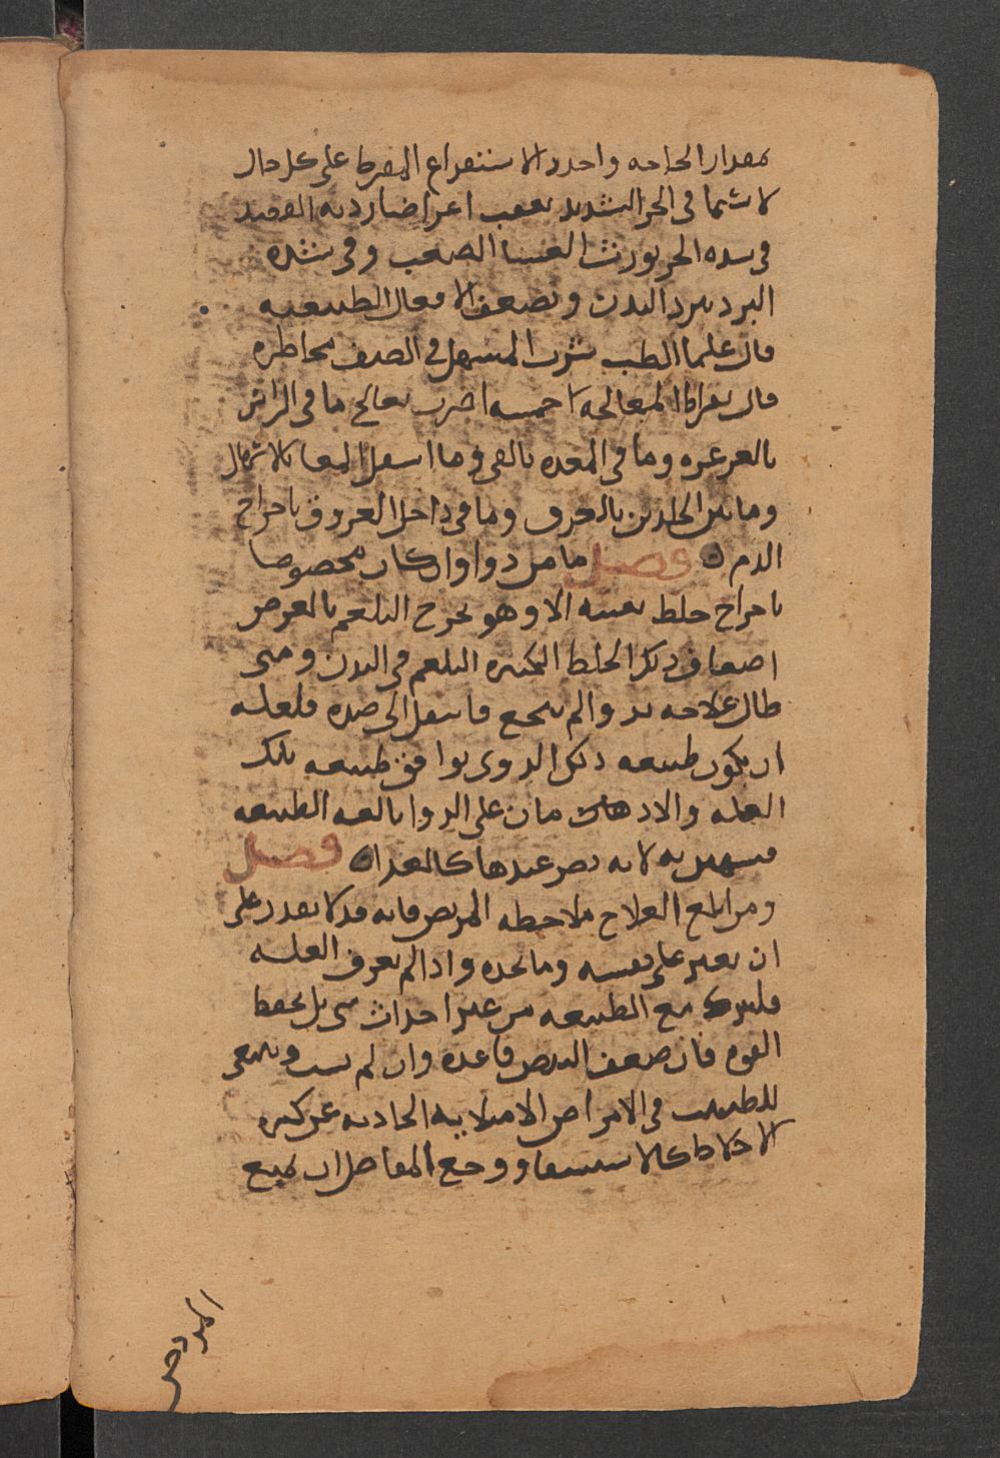 مقدار الحاجه واحدر الاستفراغ المفرط على كل حال
لا سيما فى الحر الشديد يعقب اعراضا رديه الفصد
فى شده الحر يورث الغشا الصعب وفى شده
البرد يبرد البدن ويضعف الافعال الطبيعيه
قال علما الطب شرب المسهل فى الصيف مخاطره
قال بقراط المعالجه خمسه اضرب يعالج ما فى الراس
بالغرغره وما فى المعده بالقى وما اسفل المعا بالاسهال
وما بين الجلدين بالعرق وما فى داخل العروق باخراج
الدم فصل ما من دوا وان كان مخصوصا
باخراج خلط بعينه الا وهو يخرج البلغم بالعرض
اضعاف ذلك الخلط لكثره البلغم فى البدن ومتى
طال علاجه بدوا لم ينجع فانتقل الى ضده فلعله
ان يكون طبيعه ذلك الدوى يوافق طبيعه تلك
العله والادمان على الدوا يالفه الطبيعه
فيستهين به لانه يصير عندها كالغدا فصل
ومن ابلغ العلاج ملاحظه المريض فانه قد لا يقدر على
ان يعبر على نفسه وما يجده وادا لم يعرف العله
فليترك مع الطبيعه من غير احداث شى بل يحفظ
القوه فان ضعف النبض فاغده وان لم وينبغى
للطبيب فى الامراض الامتلاييه الحادثه عن كثره
الاخلاط كالاستسقا ووجع المفاصل ان يمنع
المريض